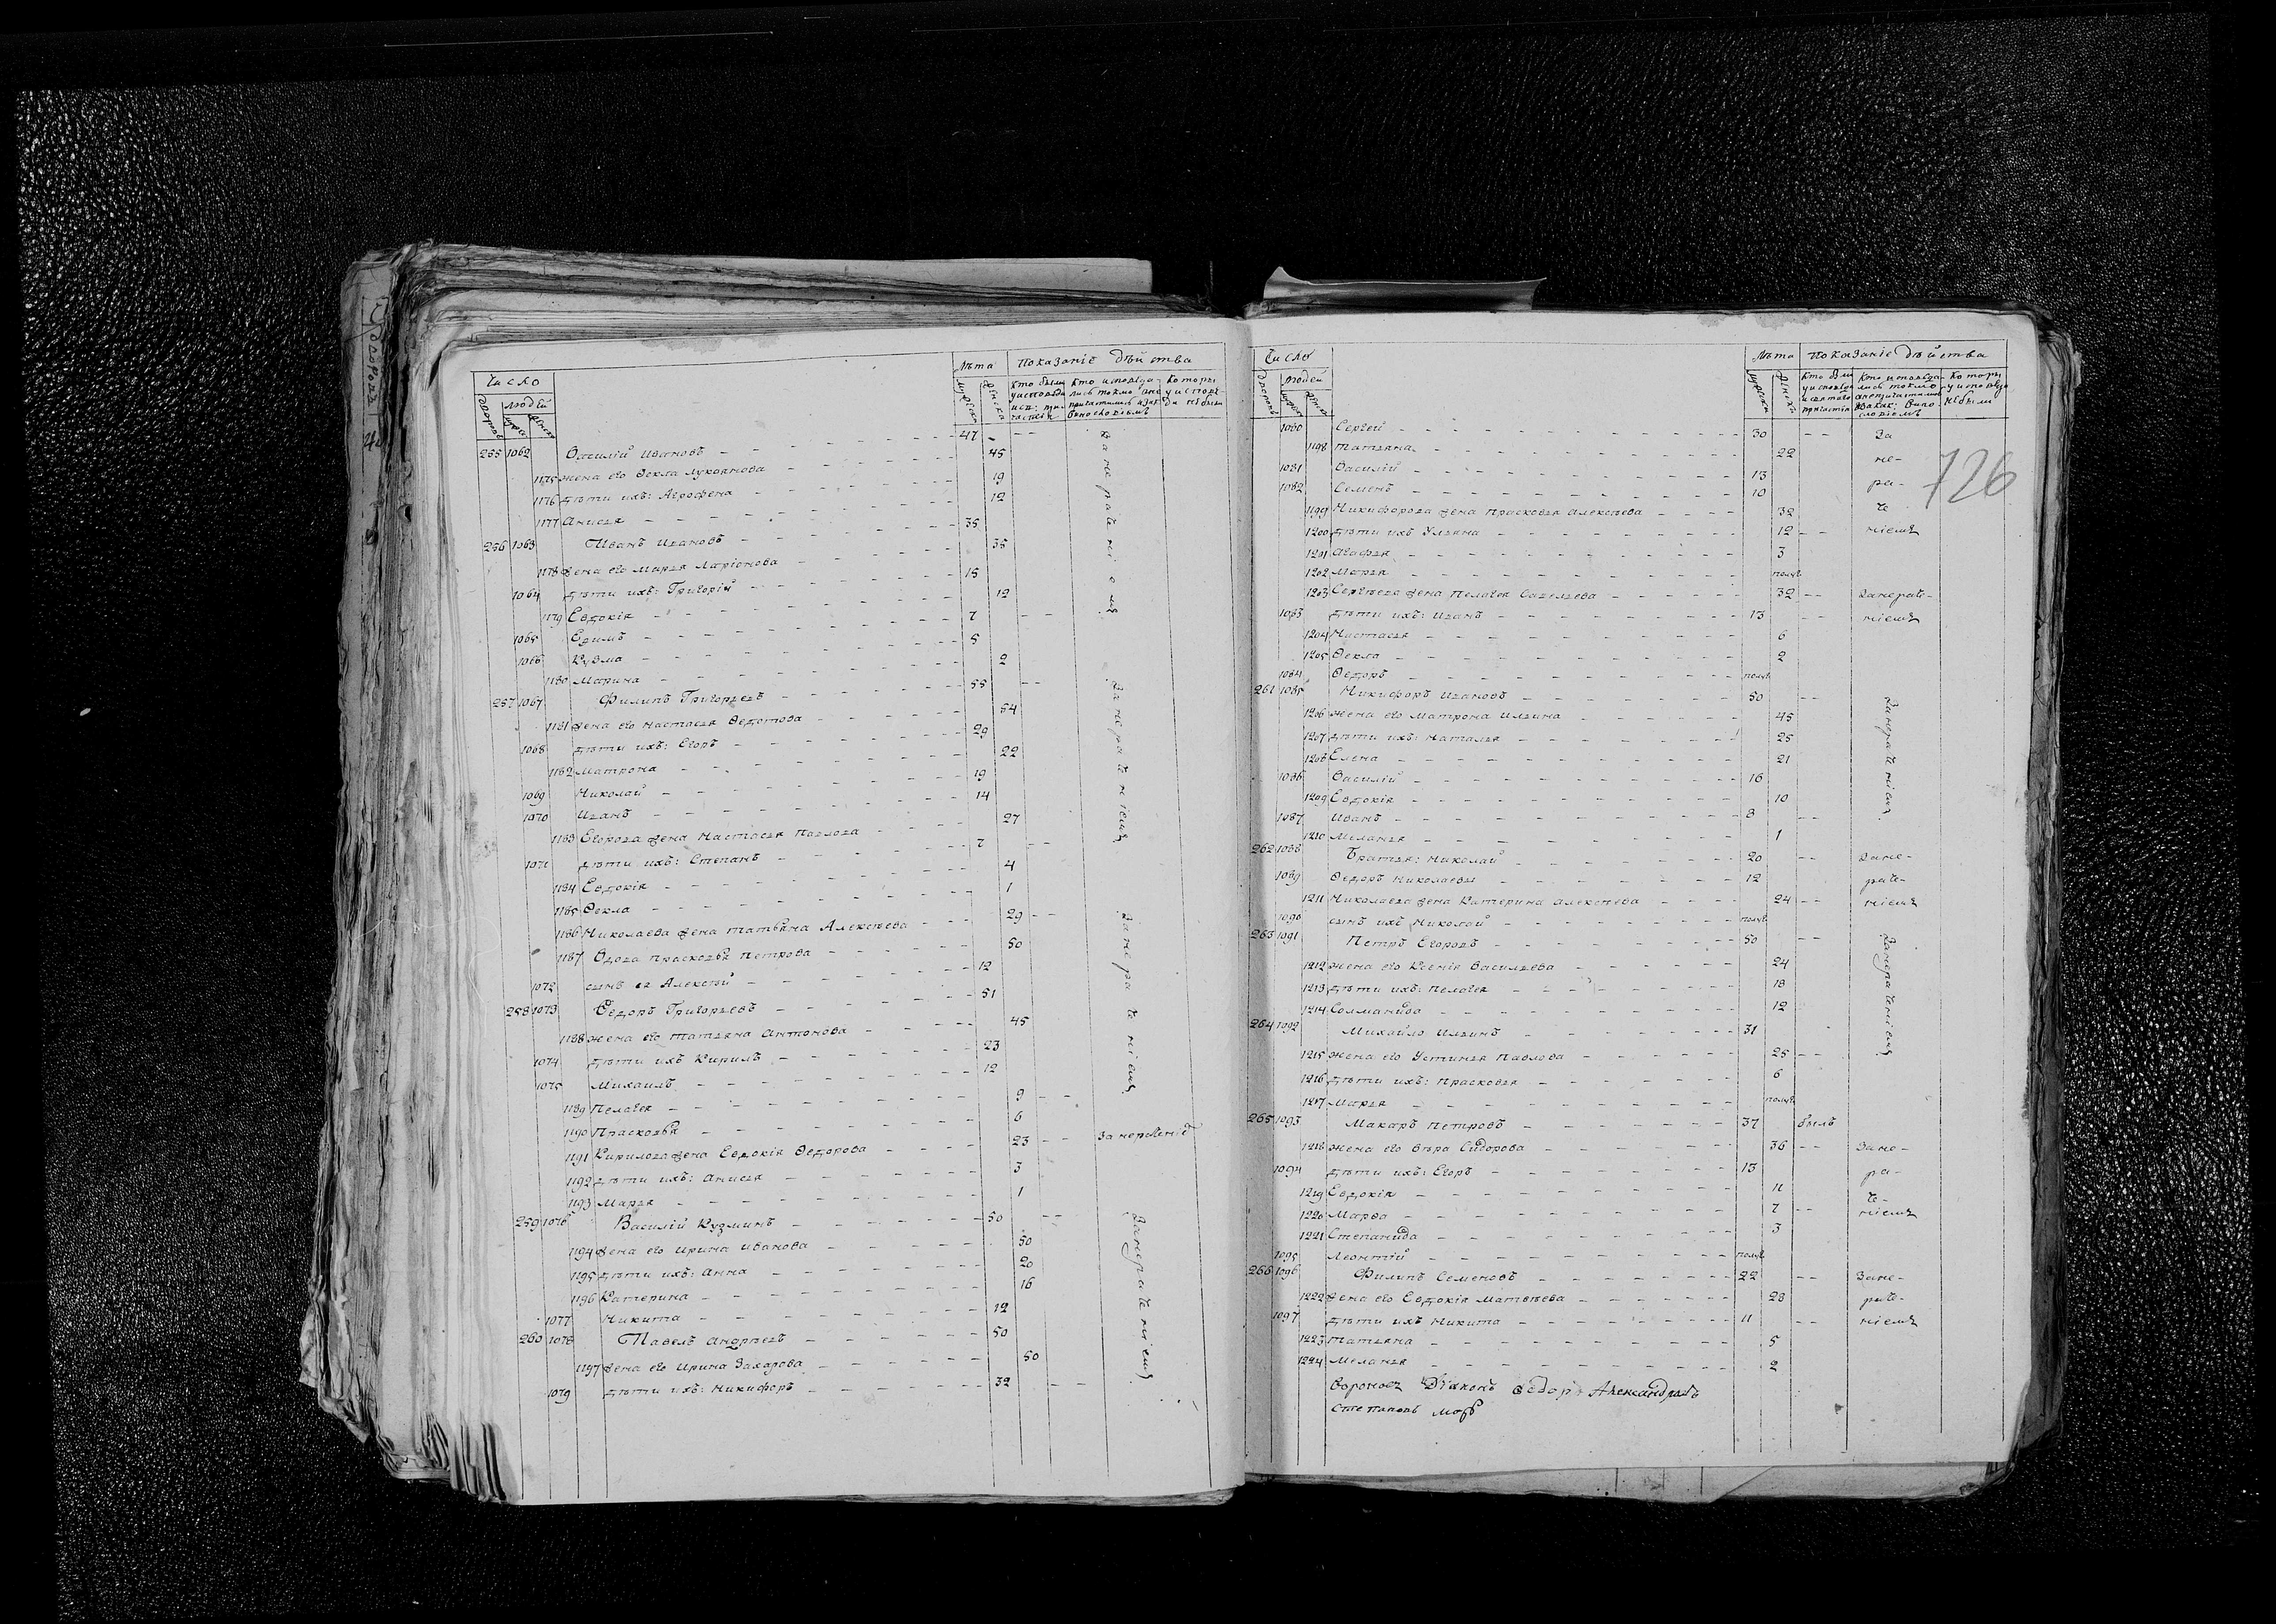 Число
Лѣта Показаніе дѣйства
дворовъ людей мужеска женска
47
255 1062 Василій Ивановъ 45
1175 жена его Фекла Лукоянова 19
1176 дѣти ихъ: Агрофена 12
1177 Анисья 35
256 1063 Иванъ Ивановъ 35
1178 жена его Марья Ларіонова 15
1064 дѣти ихъ: Григорій 12
1179 Евдокія 7
1065 Ефимъ 5
1066 Кузма 2
1180 Марина 55
257 1067 Филипъ Григорьевъ 54
1181 жена его Настасья Ѳедотова 29
1068 дѣти ихъ: Егоръ 22
1182 Матрона 19
1069 Николай 14
1070 Иванъ 27
1183 Егорова жена Настасья Павлова 7
1071 дѣти ихъ: Степанъ 4
1184 Евдокія 1
1185 Ѳекла 29
1186 Николаева жена Татьяна Алексѣева 50
1187 Вдова Прасковья Петрова 12
1072 сынъ ея Алексѣй 51
258 1073 Ѳедоръ Григорьевъ 45
1188 жена его Татьяна Антонова 23
1074 дѣти ихъ Кирилъ 12
1075 Михаилъ 9
1189 Пелагея 6
1190 Прасковья 23 Занераченіе
1191 Кирилова жена Евдокія Ѳедорова 3
1192 дѣти ихъ: Анисья 1
1193 Марья
259 1076 Василій Кузминъ 50
1194 жена его Ирина Иванова 50
1195 дѣти ихъ: Анна 20
1196 Катерина 16
1077 Никита 12
260 1078 Павелъ Андрѣевъ 50
1197 жена его Ирина Захарова 50
1079 дѣти ихъ: Никифоръ 32
Занераченіемъ
Занераченіемъ
Занераченіемъ
Занераченіемъ
Число
Лѣта Показаніе дѣйства
дворовъ людей мужеска женска
726
1080 Сергей 30 За
1198 Татьяна 22 не-
1081 Василій 13 ра-
1082 Семенъ 10
1199 Никифорова жена Прасковья Алексѣева 32 че
1200 дѣти ихъ Ульяна 12 ніемъ
1201 Агафья 3
1202 Марья полув
1203 Сергѣева жена Пелагея Савельева 32 Занераче-
1083 дѣти ихъ: Иванъ 13 ніемъ
1204 Настасья 6
1205 Ѳекла 2
1084 Ѳедоръ полув
261 1085 Никифоръ Ивановъ 50
1206 жена его Матрона Ильина 45
1207 дѣти ихъ: Наталья 25
1208 Елена 21
1086 Василій 16
1209 Евдокія 10
1087 Иванъ 8
1210 Меланья 1
Занераченіемъ
262 1088 Братья: Николай 20 Зане-
1089 Ѳедоръ Николаевы 12 раче-
1211 Николаева жена Катерина Алексѣева 24 ніемъ
1090 сынъ ихъ Николай полув
263 1091 Петръ Егоровъ 50
1212 жена его Ксенія Васильева 24
1213 дѣти ихъ: Пелагея 18
1214 Соломанида 12
264 1092 Михайло Ильинъ 31
Занераченіемъ
1215 жена его Устинья Павлова 25
1216 дѣти ихъ: Прасковья 6
1217 Марья полув
265 1093 Макаръ Петровъ 37 былъ
1218 жена его Вѣра Сидорова 36 Зане-
1094 дѣти ихъ: Егоръ 13 ра-
1219 Евдокія 11 че-
1220 Марѳа 7 ніемъ
1221 Степанида 3
1095 Леонтій полув
266 1096 Филипъ Семеновъ 22 Зане-
1222 жена его Евдокія Матвѣева 28 раче-
1097 дѣти ихъ Никита 11 ніемъ
1223 Татьяна 5
1224 Меланья 2
Діаконъ Ѳедоръ Александровъ